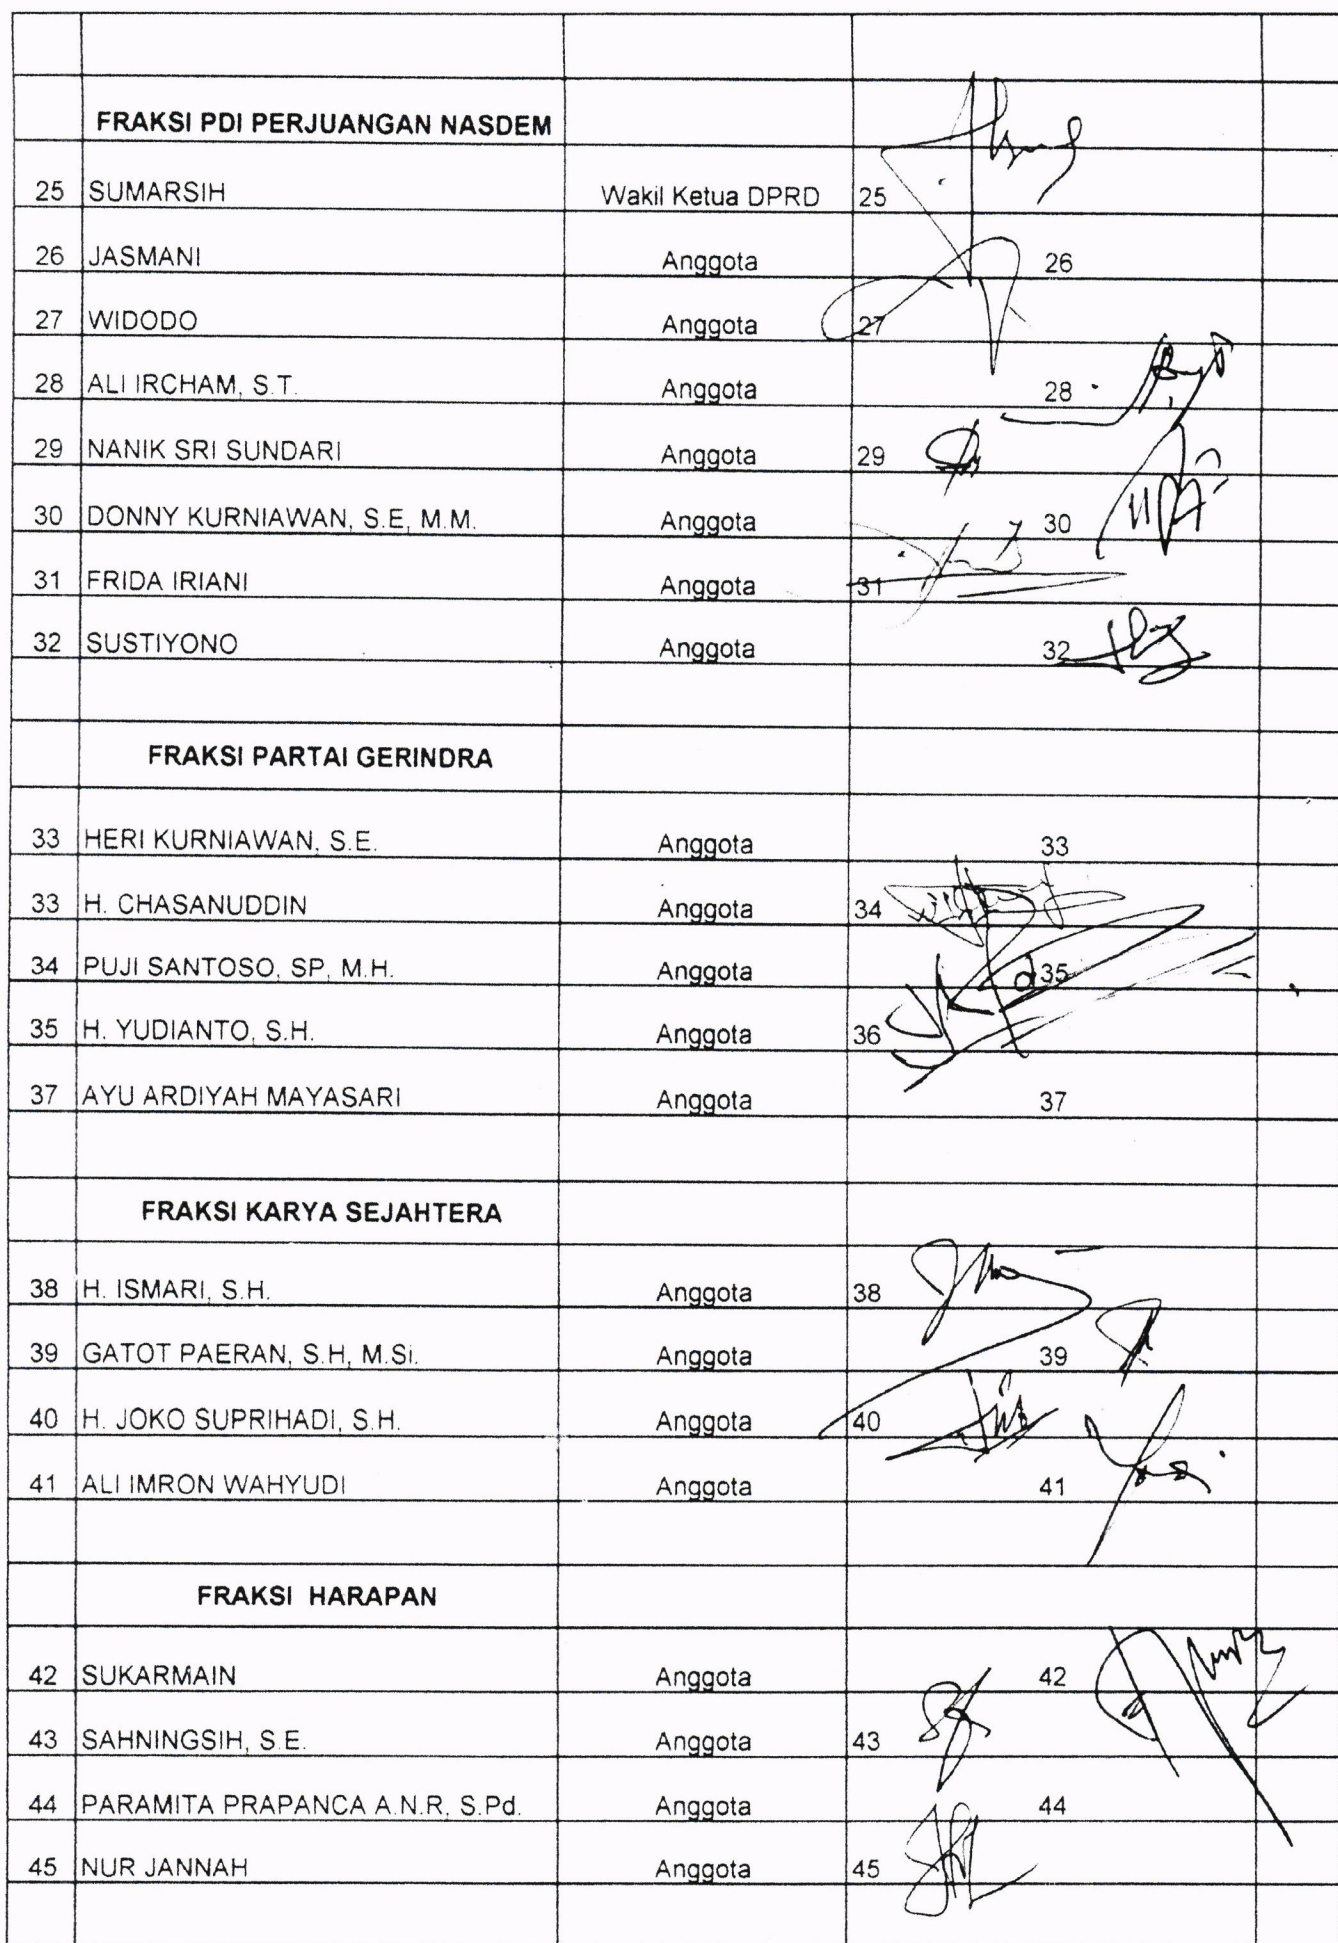 FRAKSI PDI PERJUANGAN NASDEM
25 SUMARSIH Wakil Ketua DPRD 25
26 JASMANI Anggota 26
27 WIDODO Anggota 27
28 ALI IRCHAM, S.T. Anggota 28
29 NANIK SRI SUNDARI Anggota 29
30 DONNY KURNIAWAN, S.E, M.M. Anggota 30
31 FRIDA IRIANI Anggota 31
32 SUSTIYONO Anggota 32
FRAKSI PARTAI GERINDRA
33 HERI KURNIAWAN, S.E. Anggota 33
33 H. CHASANUDDIN Anggota 34
34 PUJI SANTOSO, SP, M.H. Anggota 35
35 H. YUDIANTO, S.H. Anggota 36
37 AYU ARDIYAH MAYASARI Anggota 37
FRAKSI KARYA SEJAHTERA
38 H. ISMARI, S.H. Anggota 38
39 GATOT PAERAN, S.H, M.Si. Anggota 39
40 H. JOKO SUPRIHADI, S.H. Anggota 40
41 ALI IMRON WAHYUDI Anggota 41
FRAKSI HARAPAN
42 SUKARMAIN Anggota 42
43 SAHNINGSIH, S.E. Anggota 43
44 PARAMITA PRAPANCA A.N.R, S.Pd. Anggota 44
45 NUR JANNAH Anggota 45